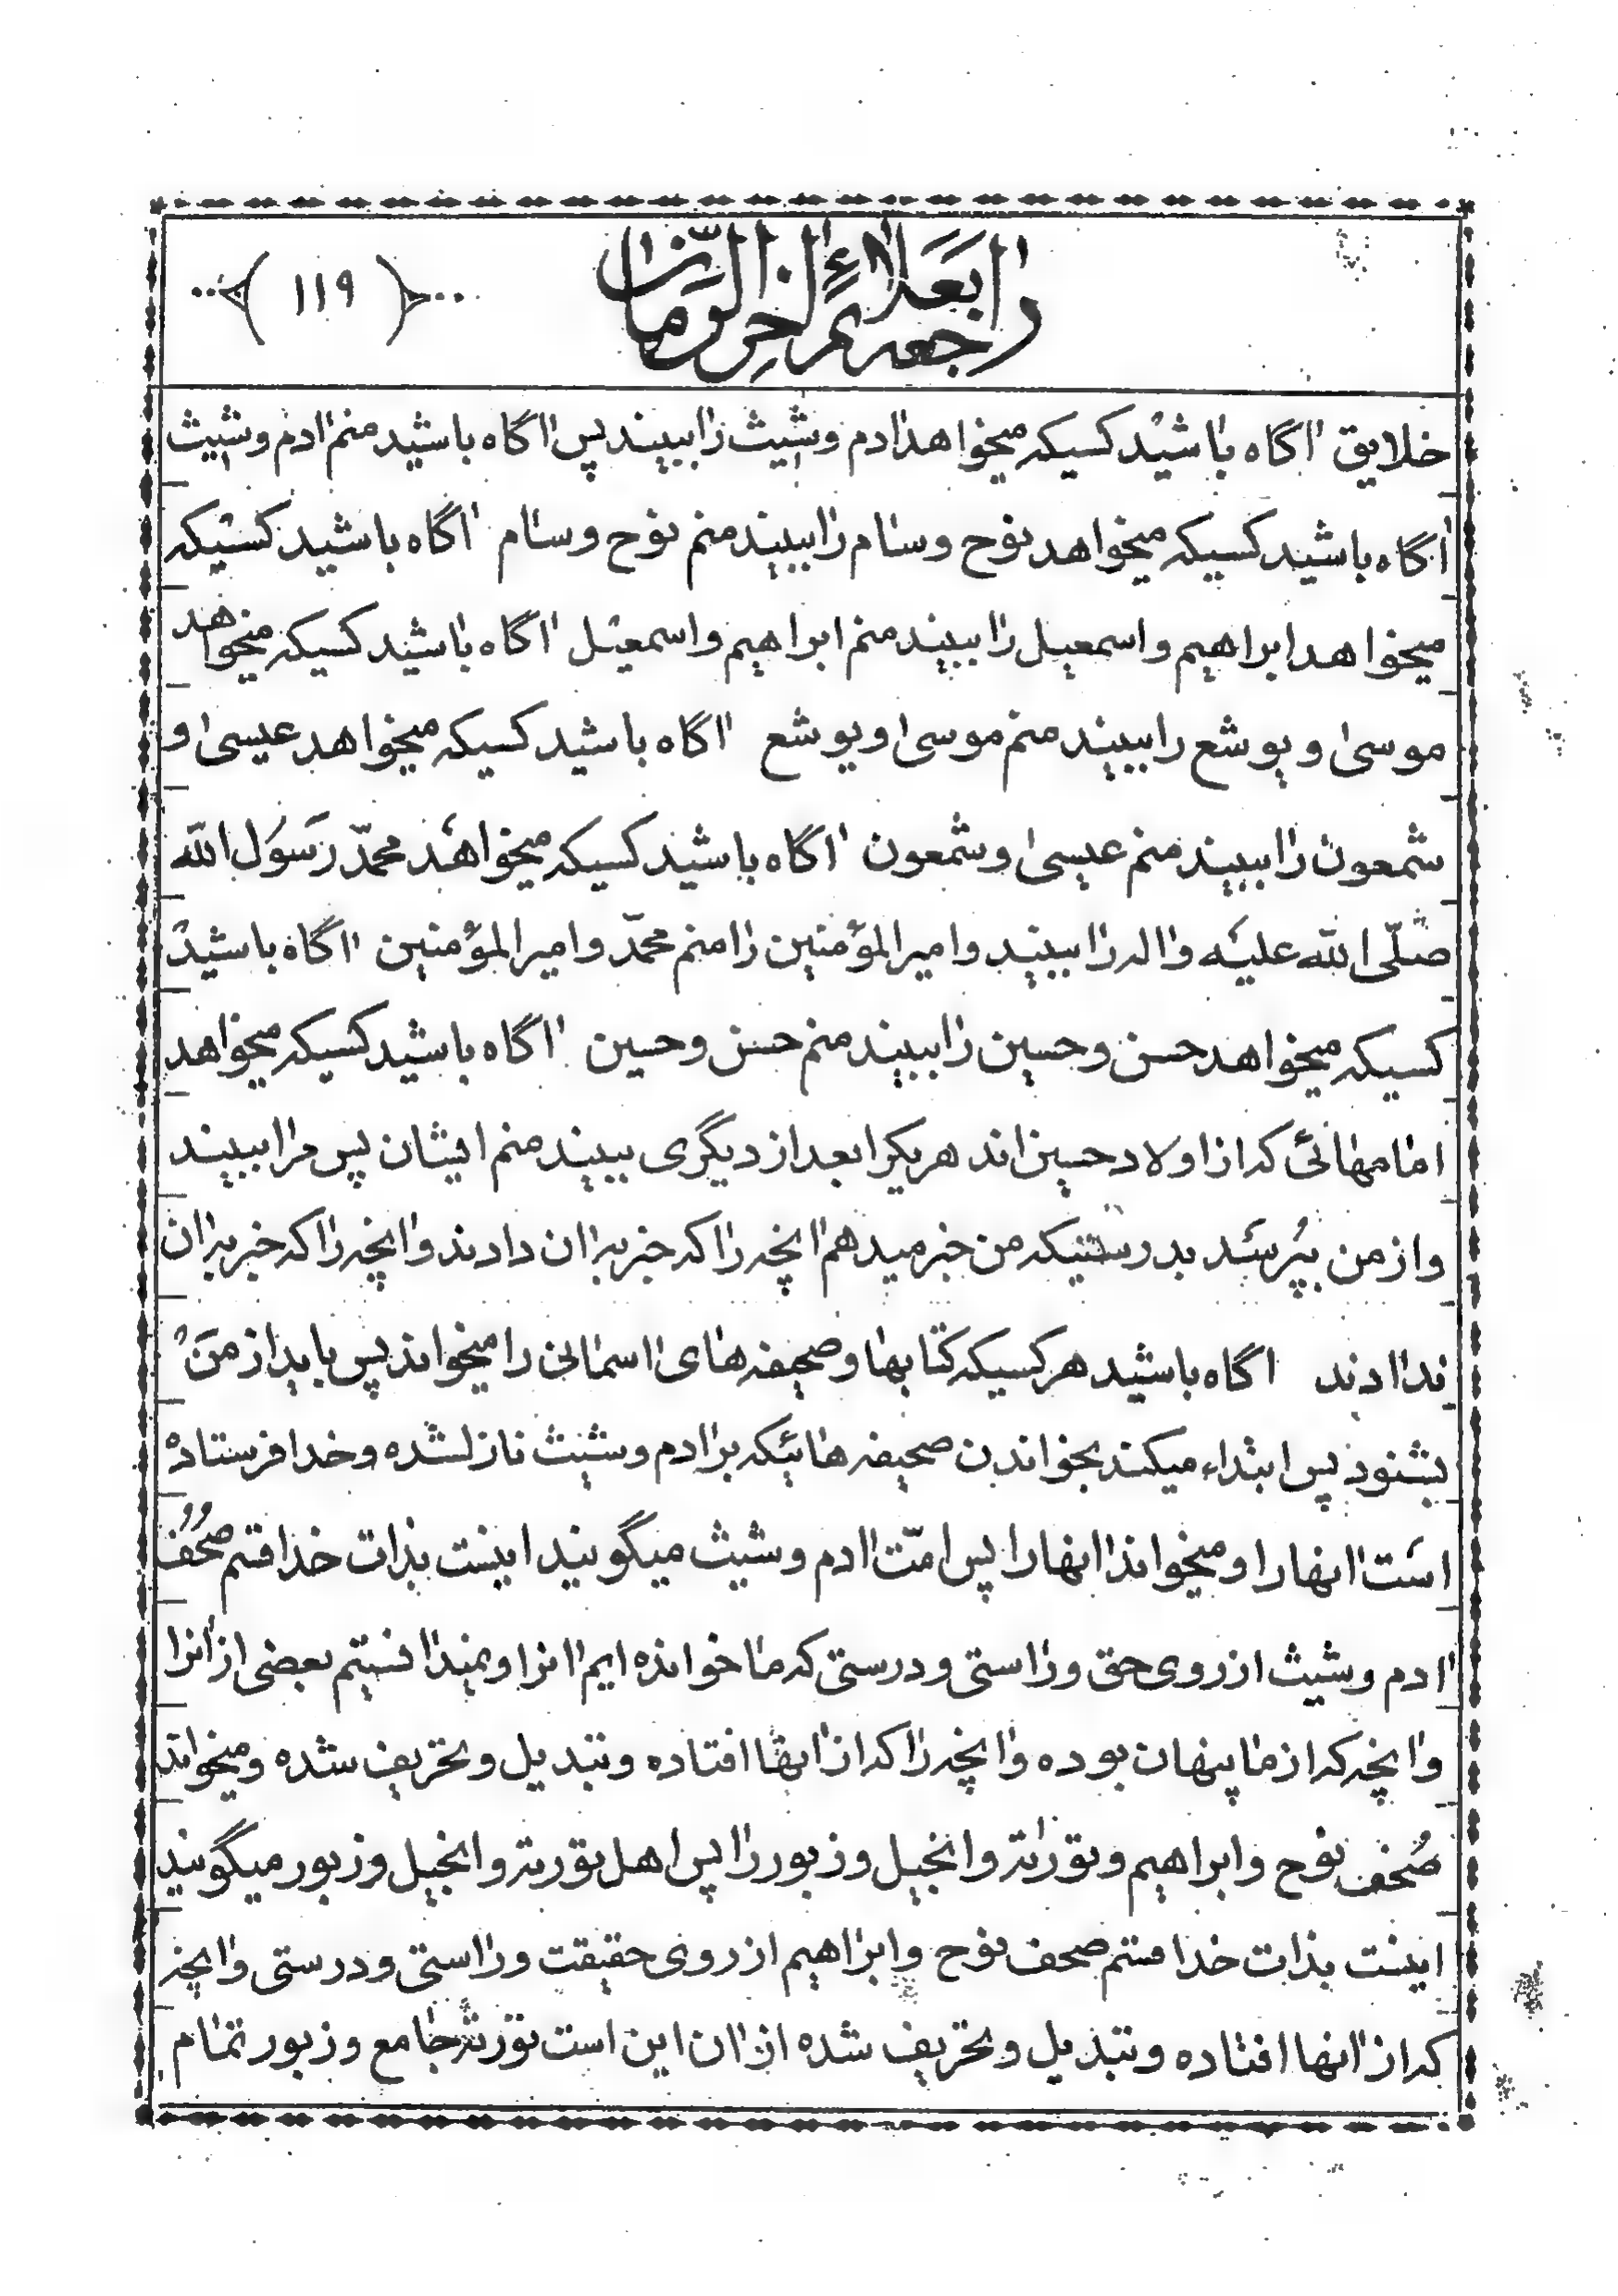 راجعه بعلائم اخر الزمان
﴿ ١١٩ ﴾
خلایق اگاه باشید کسیکه میخواهد ادم وشیث را ببیند پس اگاه باشید منم ادم وشیث
اگاه باشید کسیکه میخواهد نوح وسام را ببیند منم نوح وسام اگاه باشید کسیکه
میخواهد ابراهیم واسمعیل را ببیند منم ابراهیم واسمعیل اگاه باشید کسیکه میخواهد
موسی ویوشع را ببیند منم موسی ویوشع اگاه باشید کسیکه میخواهد عیسی و
شمعون را ببیند منم عیسی وشمعون اگاه باشید کسیکه میخواهد محمّد رسول الله
صلّی الله علیه واله را ببیند وامیرالمؤمنین را منم محمّد وامیرالمؤمنین اگاه باشید
کسیکه میخواهد حسن وحسین را ببیند منم حسن وحسین اگاه باشید کسیکه میخواهد
امامهائی که از اولاد حسین اند هر یکرا بعد از دیگری ببیند منم ایشان پس مرا ببیند
واز من بپرسید بدرستیکه من خبر میدهم انچه را که خبر بران دادند وانچه را که خبر بران
ندادند اگاه باشید هر کسیکه کتابها وصحیفه های اسمانی را میخواند پس باید از من
بشنود پس ابتداء میکند بخواندن صحیفه هائیکه بر ادم وشیث نازلشده وخدا فرستاده
است انها را ومیخواند انها را پس امّت ادم وشیث میگویند اینست بذات خدا قسم صحف
ادم وشیث از روی حق وراستی ودرستی که ما خوانده ایم انرا ونمیدانستیم بعضی از انرا
وانچه که از ما پنهان بوده وانچه را که از انها افتاده وتبدیل وتحریف شده ومیخواند
صحف نوح وابراهیم وتوریة وانجیل وزبور را پس اهل توریة وانجیل وزبور میگویند
اینست بذات خدا قسم صحف نوح وابراهیم از روی حقیقت وراستی ودرستی وانچه
که از انها افتاده وتبدیل وتحریف شده از ان این است توریة جامع وزبور تمام